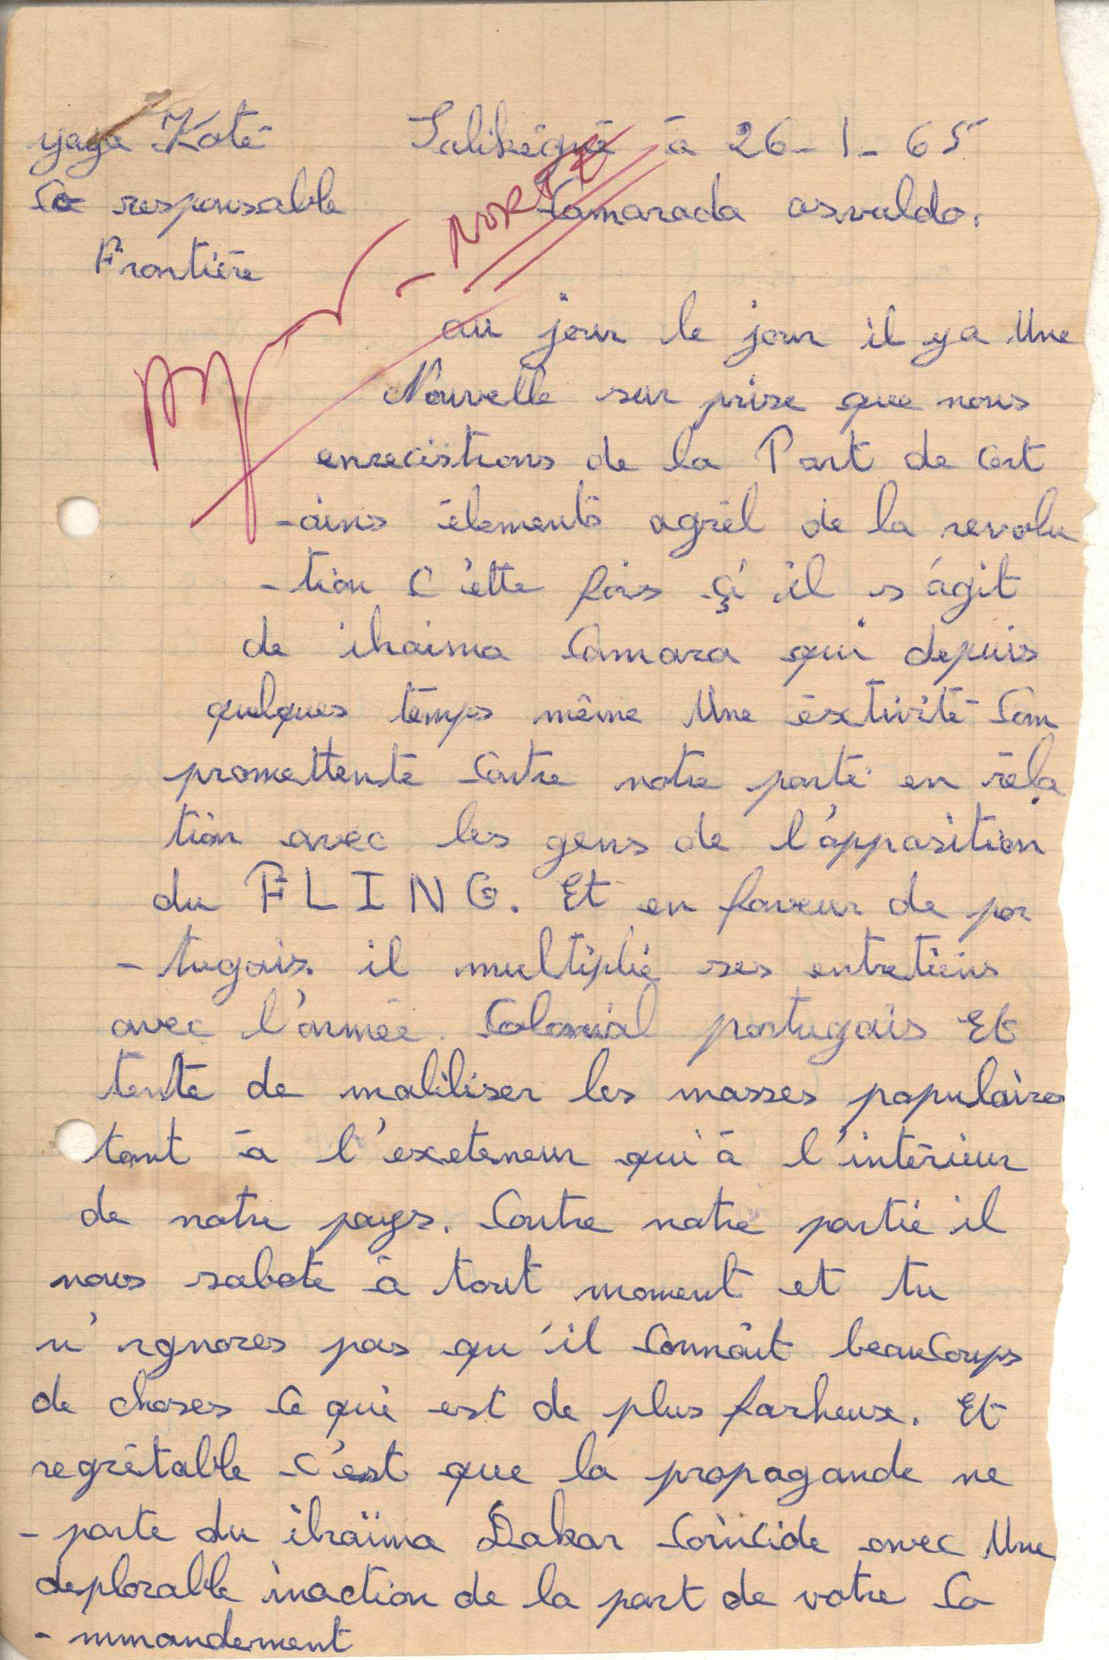 yaya Koté Salikégné à 26-1-65
Co responsable Camarada osvaldo.
Frontière
- NORTE
au jour le jour il ya Une
Nouvelle sur prise que nous
enrecistrons de la Part de Cert
-ains élements agrèl de la revolu
-tion C'ette fois çi il s'ágit
de ihaima Camara qui depuis
quelques temps même Une éxtivité Com
promettente Contre notre parti en réla
tion avec les gens de l'apposition
du FLING. Et en faveur de por
-tugais. il multiplié ses entretiens
avec l'armée Colonial portugais Et
tente de mobiliser les masses populaires
tant à l'exeterieur qui'à l'intérieur
de notre pays. Contre notre partie il
nous sabote à tout moment et tu
n'ignores pas qu'il Connaît beauCoups
de choses Ce qui est de plus facheux. Et
regrètable C'est que la propagande ne
-parte du ihaïma Dakar Coïncide avec Une
deplorable inaction de la part de votre Co
-mmandement